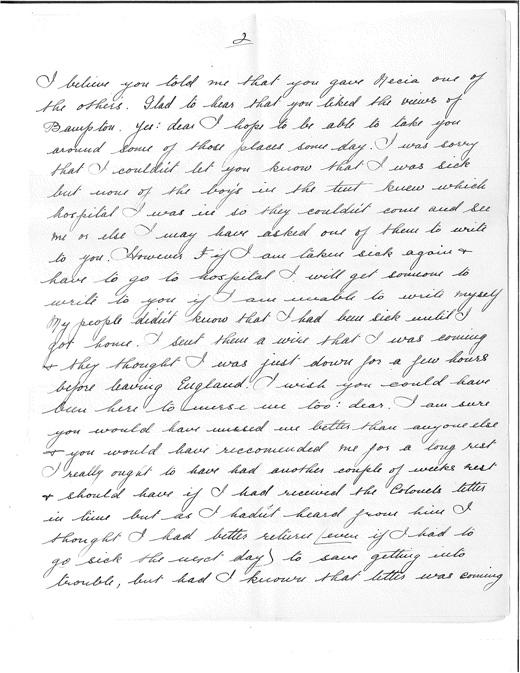 2
I believe you told me that you gave Necia one of
the others. Glad to hear that you liked the views of
Bampton. Yes: dear I hope to be able to take you
around some of those places some day. I was sorry
that I couldn't let you know that I was sick
but none of the boys in the tent knew which
hospital I was in so they couldn't come and see
me or else I may have asked one of them to write
to you. However if I am taken sick again &
have to go to hospital I will get someone to
write to you if I am unable to write myself
My people didn't know that I had been sick until I
got home. I sent them a wire that I was coming
& they thought I was just down for a few hours
before leaving England. I wish you could have
been here to nurse me too: dear. I am sure
you would have nursed me better than anyone else
& you would have reccomended me for a long rest
I really ought to have had another couple of weeks rest
& should have if I had received the Colonels letter
in time but as I hadn't heard from him I
thought I had better return (even if I had to
go sick the next day) to save getting into
trouble, but had I known that letter was coming